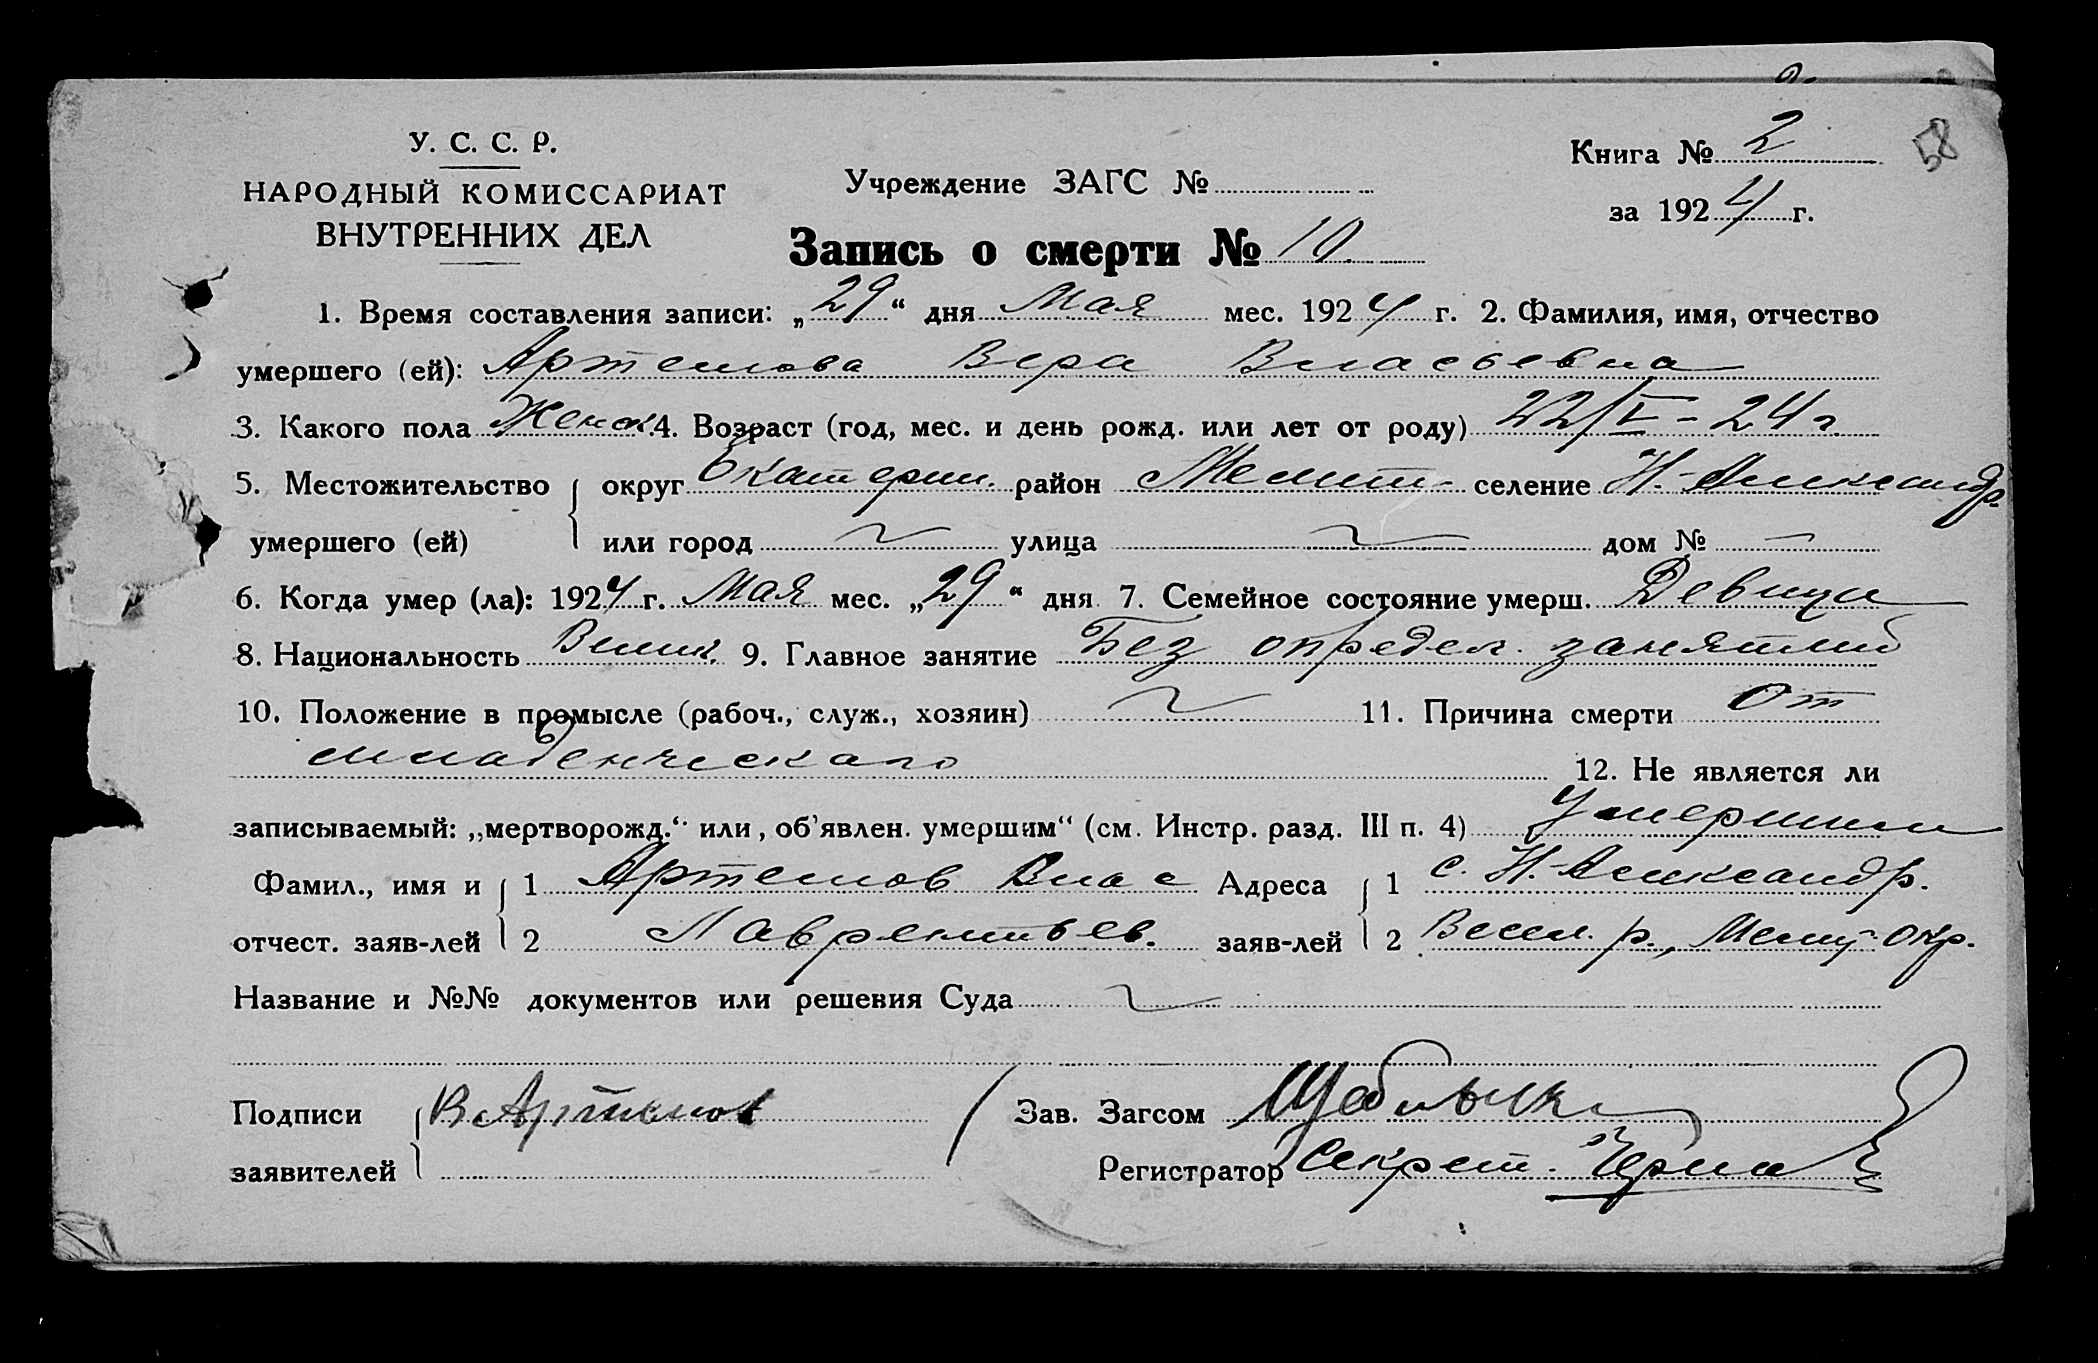 58
У. С. С. Р.
НАРОДНЫЙ КОМИССАРИАТ
ВНУТРЕННИХ ДЕЛ
Учреждение ЗАГС №
Книга № 2
за 1924 г.
Запись о смерти № 10
1. Время составления записи: „29“ дня Мая мес. 1924 г. 2. Фамилия, имя, отчество
умершего (ей): Артемова Вера Власьевна
3. Какого пола Женск. 4. Возраст (год, мес. и день рожд. или лет от роду) 22/V - 24 г.
5. Местожительство округ Екатерин. район Мелит- селение Н.-Александр.
умершего (ей) или город улица дом № —
6. Когда умер (ла): 1924 г. Мая мес. „29“ дня 7. Семейное состояние умерш. Девица
8. Национальность Велик. 9. Главное занятие Без определ. занятий
10. Положение в промысле (рабоч., служ., хозяин) 11. Причина смерти От
младенческаго 12. Не является ли
записываемый: „мертворожд.“ или „об'явлен. умершим“ (см. Инстр. разд. III п. 4) Умершим
Фамил., имя и 1 Артемов Влас Адреса 1 с. Н.-Александр.
отчест. заяв-лей 2 Лаврентьев. заяв-лей 2 Весел. р., Мелит. окр.
Название и №№ документов или решения Суда
Подписи В Артемов Зав. Загсом
заявителей Регистратор Секрет.